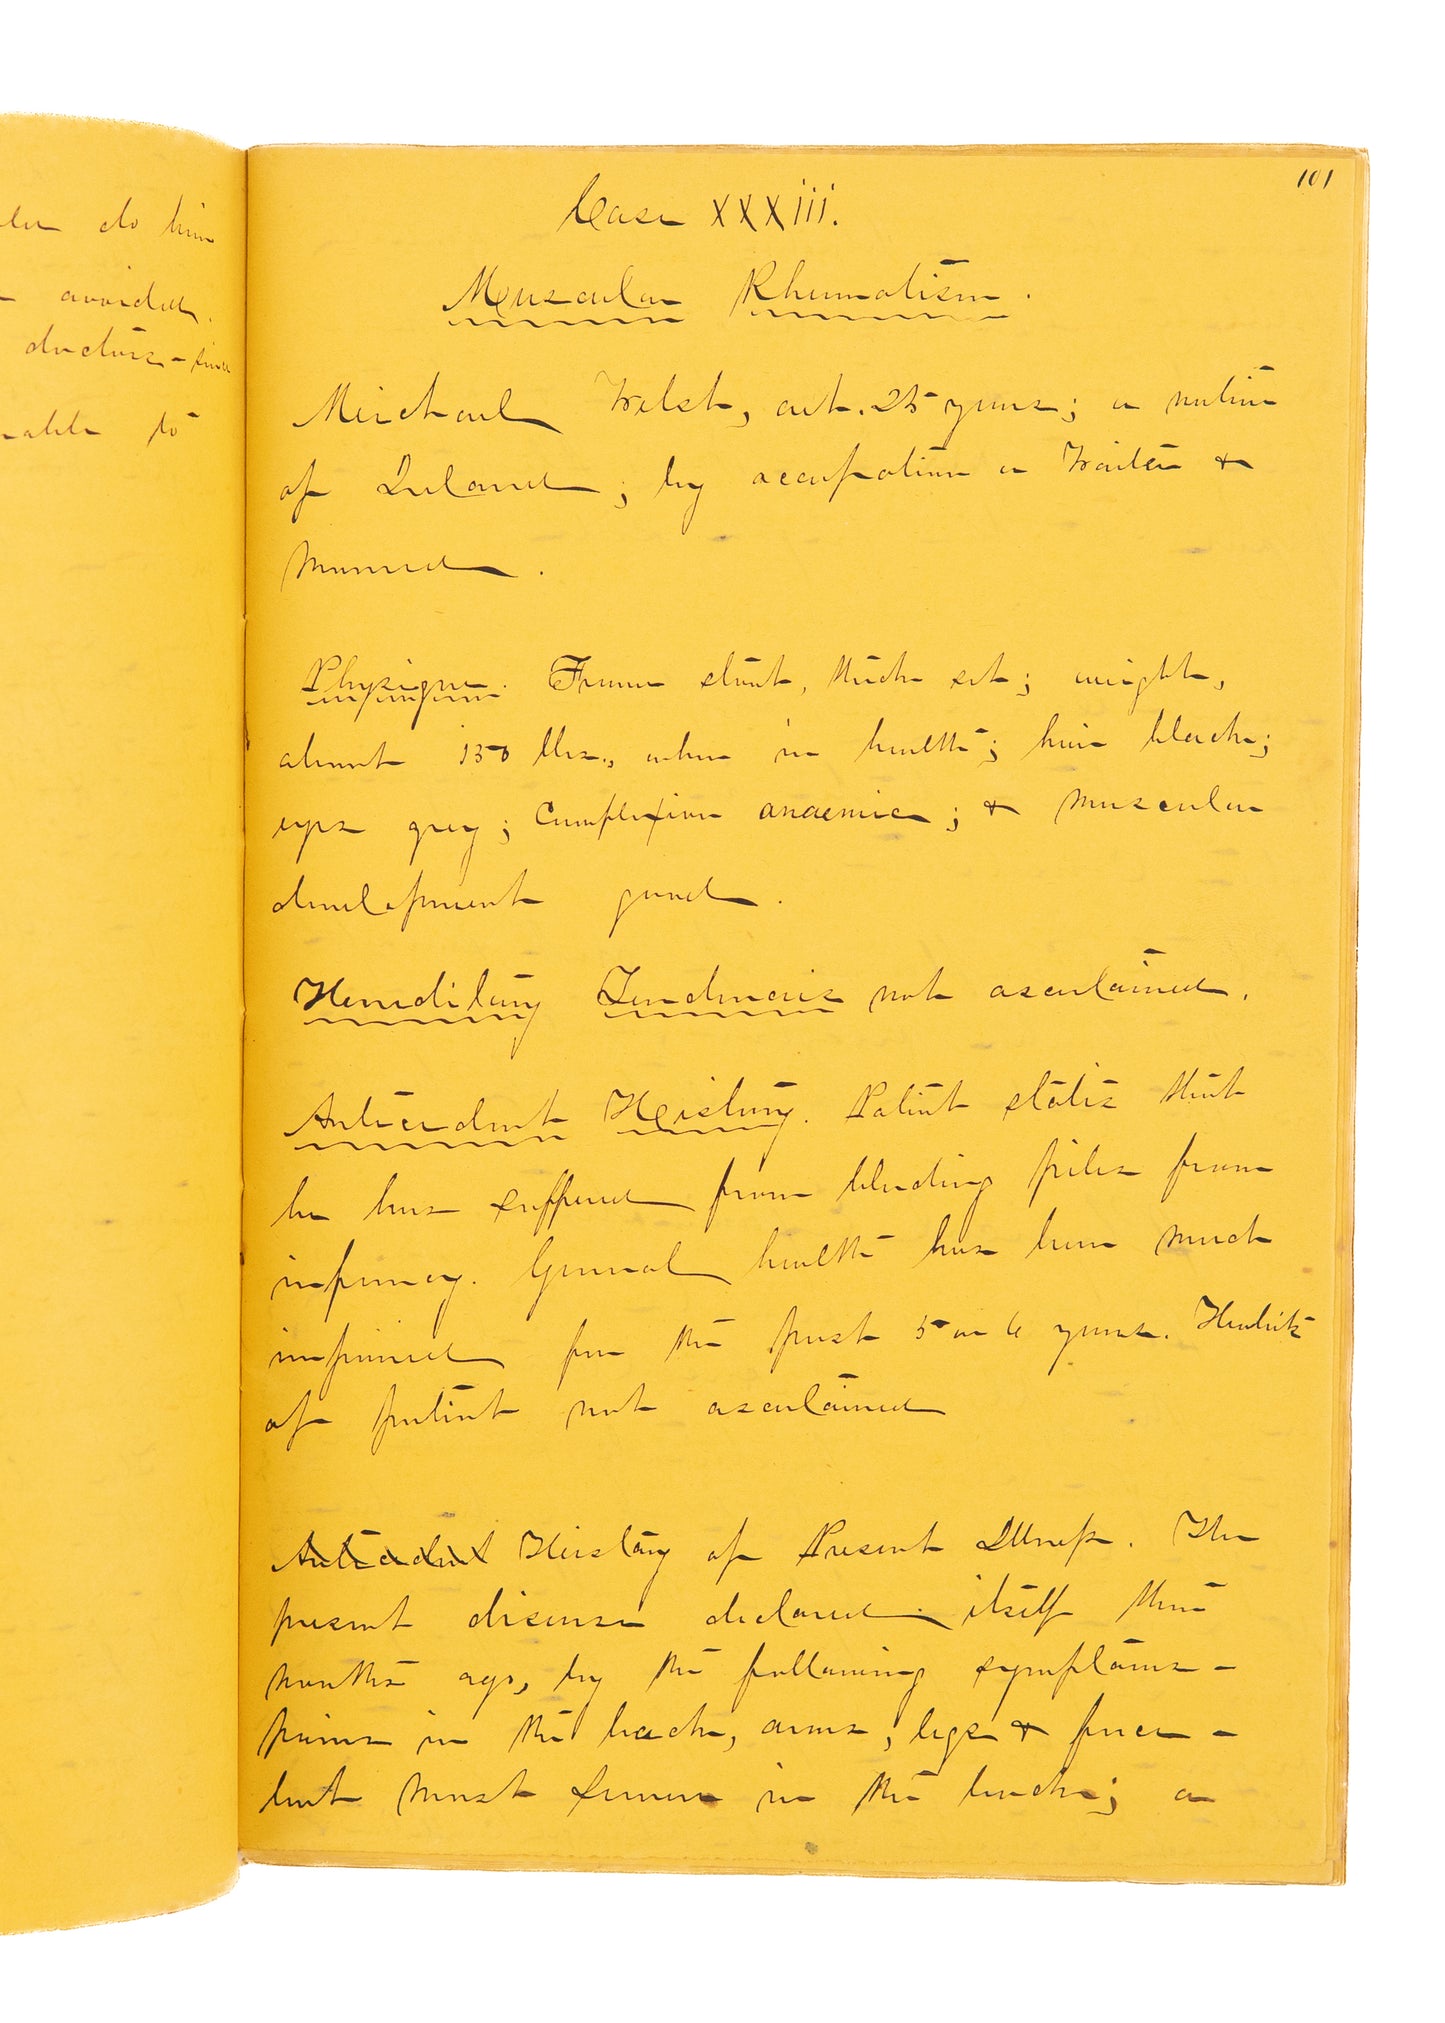 do him
doctors -
to
101
Case XXXiii.
Muscular Rheumatism.
Michael Welsh, aet. 25 years; a native
of Ireland; by occupation a Waiter &
married.
Physique. Frame stout, thick set; weight,
about 150 lbs., when in health; hair black;
eyes grey; complexion anaemic; & muscular
development good.
Hereditary Tendencies not ascertained.
Antecedent History. Patient states that
he has suffered from bleeding piles from
infancy. General health has been much
impaired for the past 5 or 6 years. Habits
of patient not ascertained
Antecedent History of Present Illness. The
present disease declared itself three
months ago, by the following symptoms -
pains in the back, arms, legs & face -
but most severe in the back; a